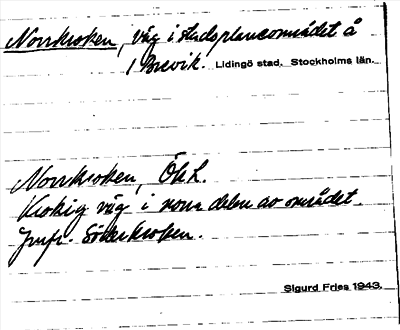 Norrkroken, väg i stadsplaneområdet å
Brevik. Lidingö stad. Stockholms län.
Norrkroken, Ök L.
Krokig väg i norra delen av området.
Jmfr. Söderkroken.
Sigurd Fries 1943.